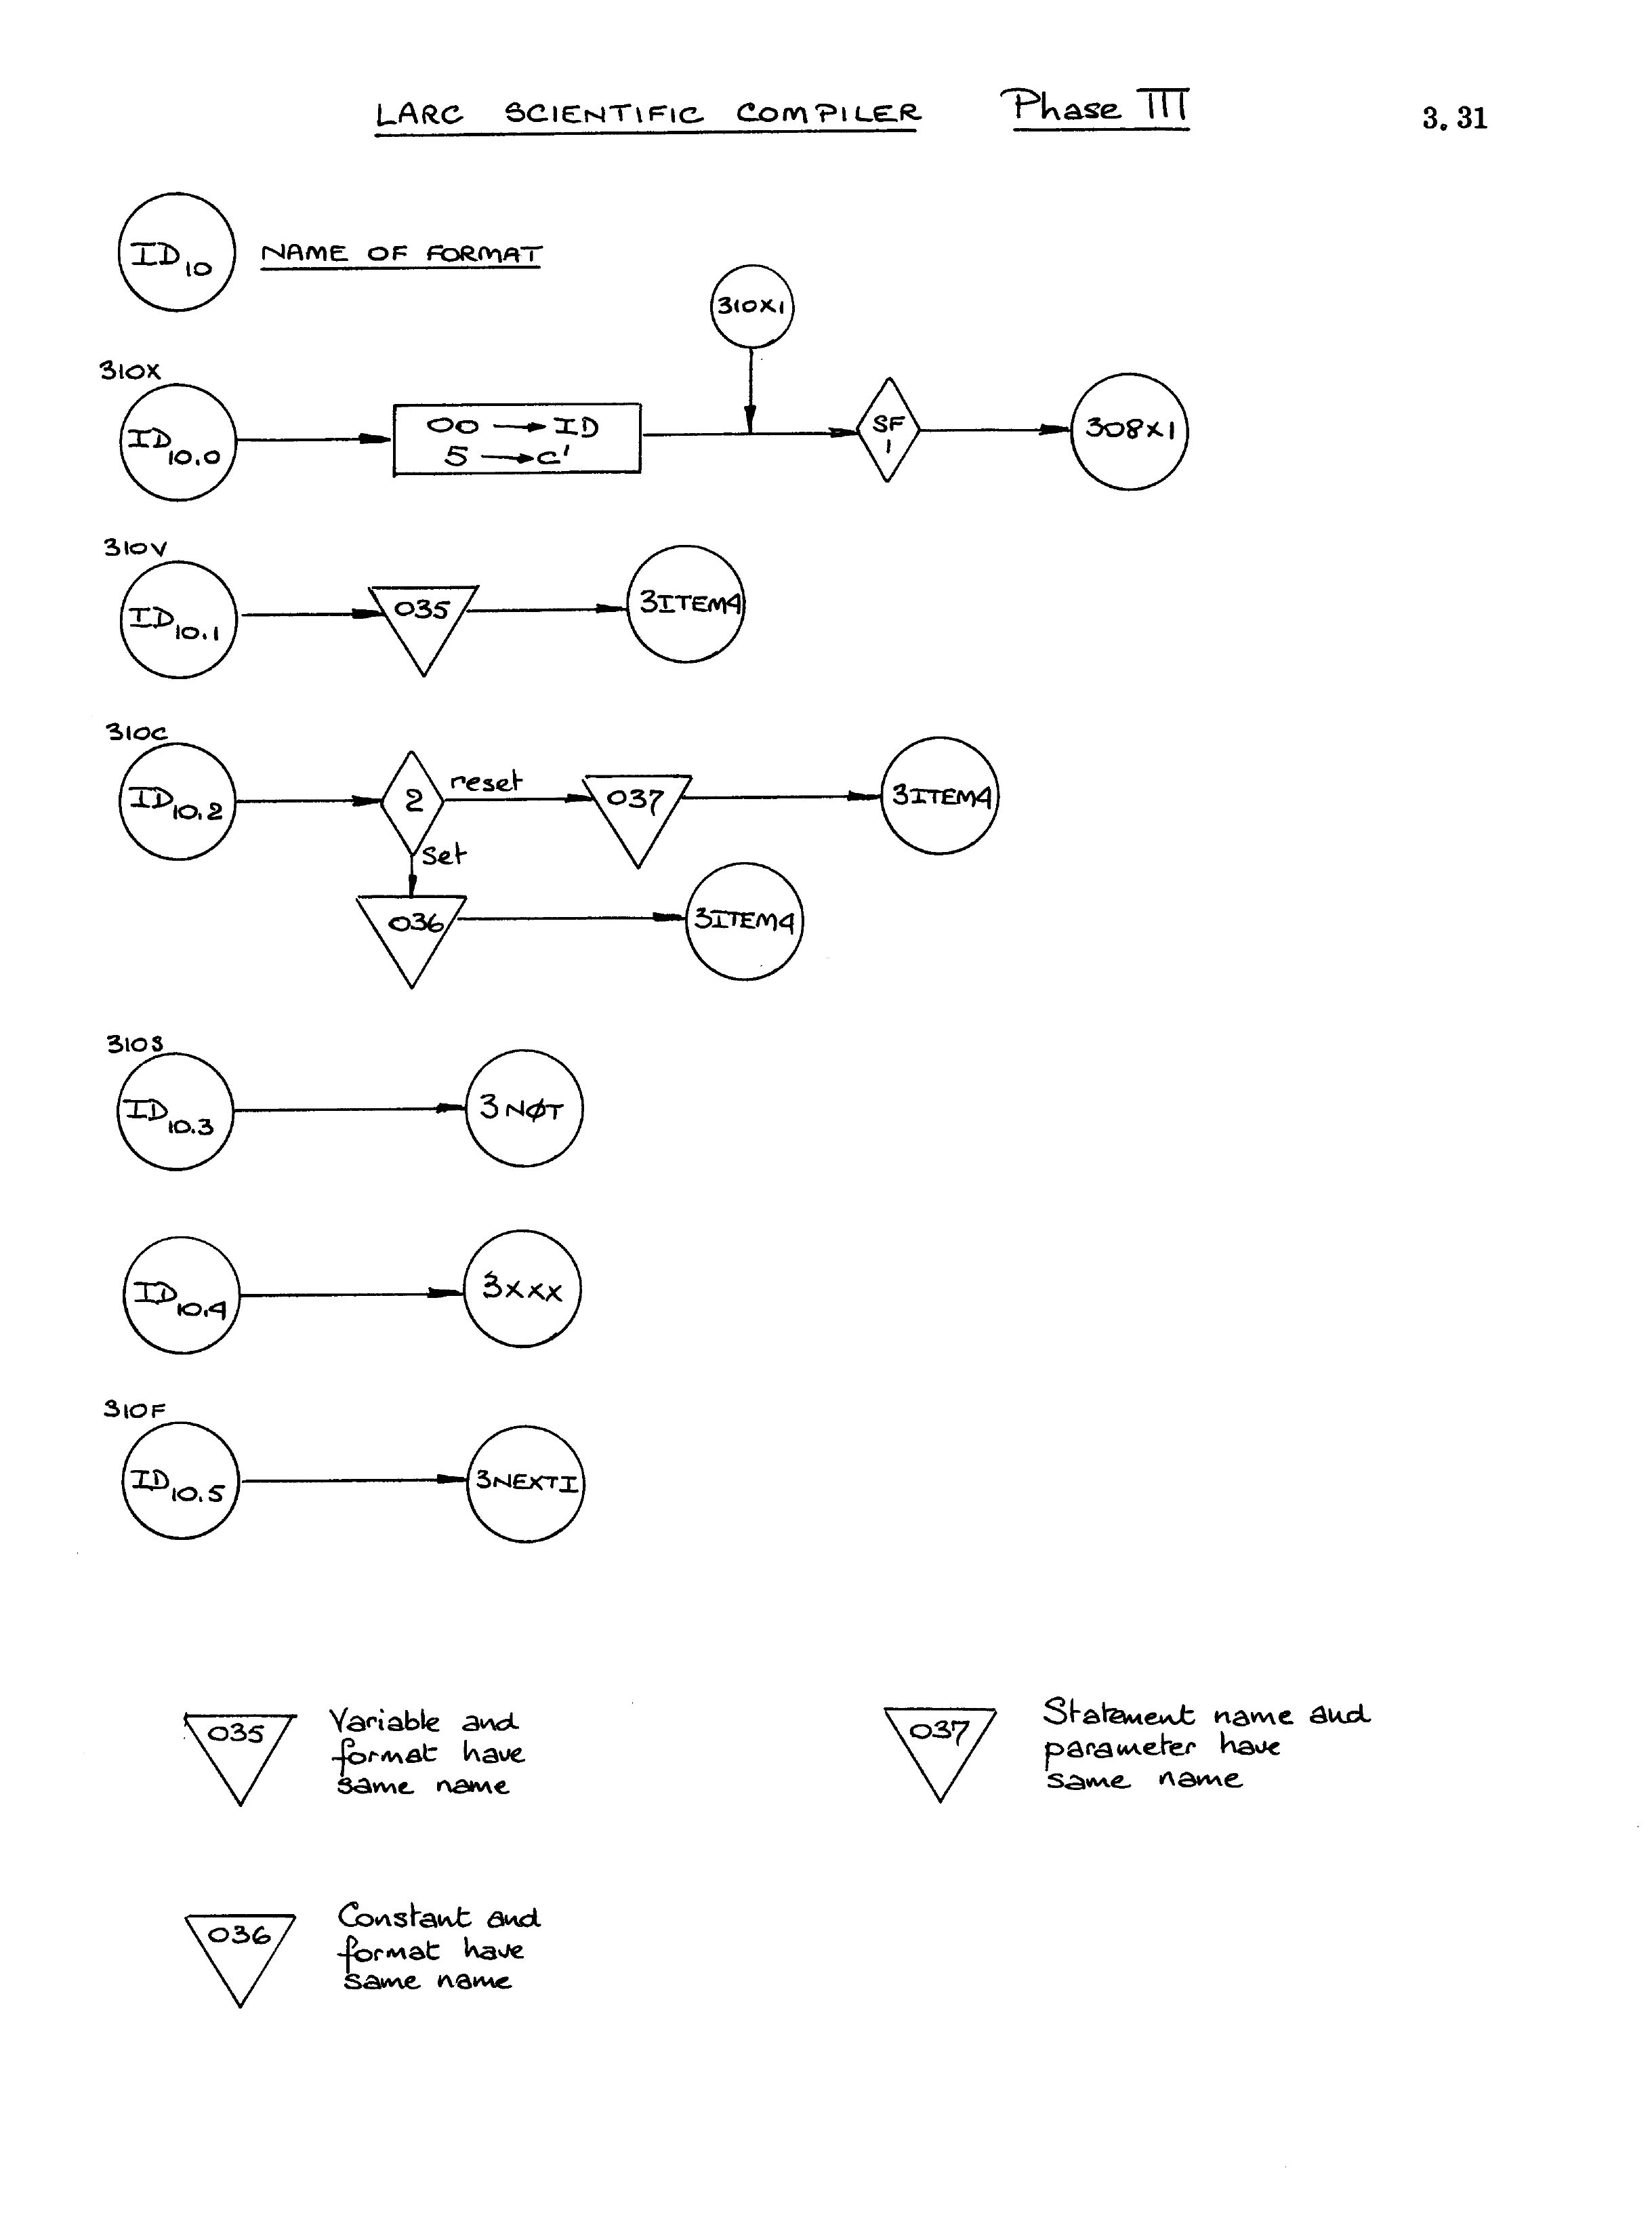 LARC SCIENTIFIC COMPILER Phase III 3.31
ID10 NAME OF FORMAT
310X1
310X
ID10.0
00 → ID
5 → C'
SF
1
308X1
310V
ID10.1
035
3ITEM4
310C
ID10.2
2
reset
037
3ITEM4
set
036
3ITEM4
310S
ID10.3
3NØT
ID10.4
3XXX
310F
ID10.5
3NEXTI
035
Variable and
format have
same name
037
Statement name and
parameter have
same name
036
Constant and
format have
same name